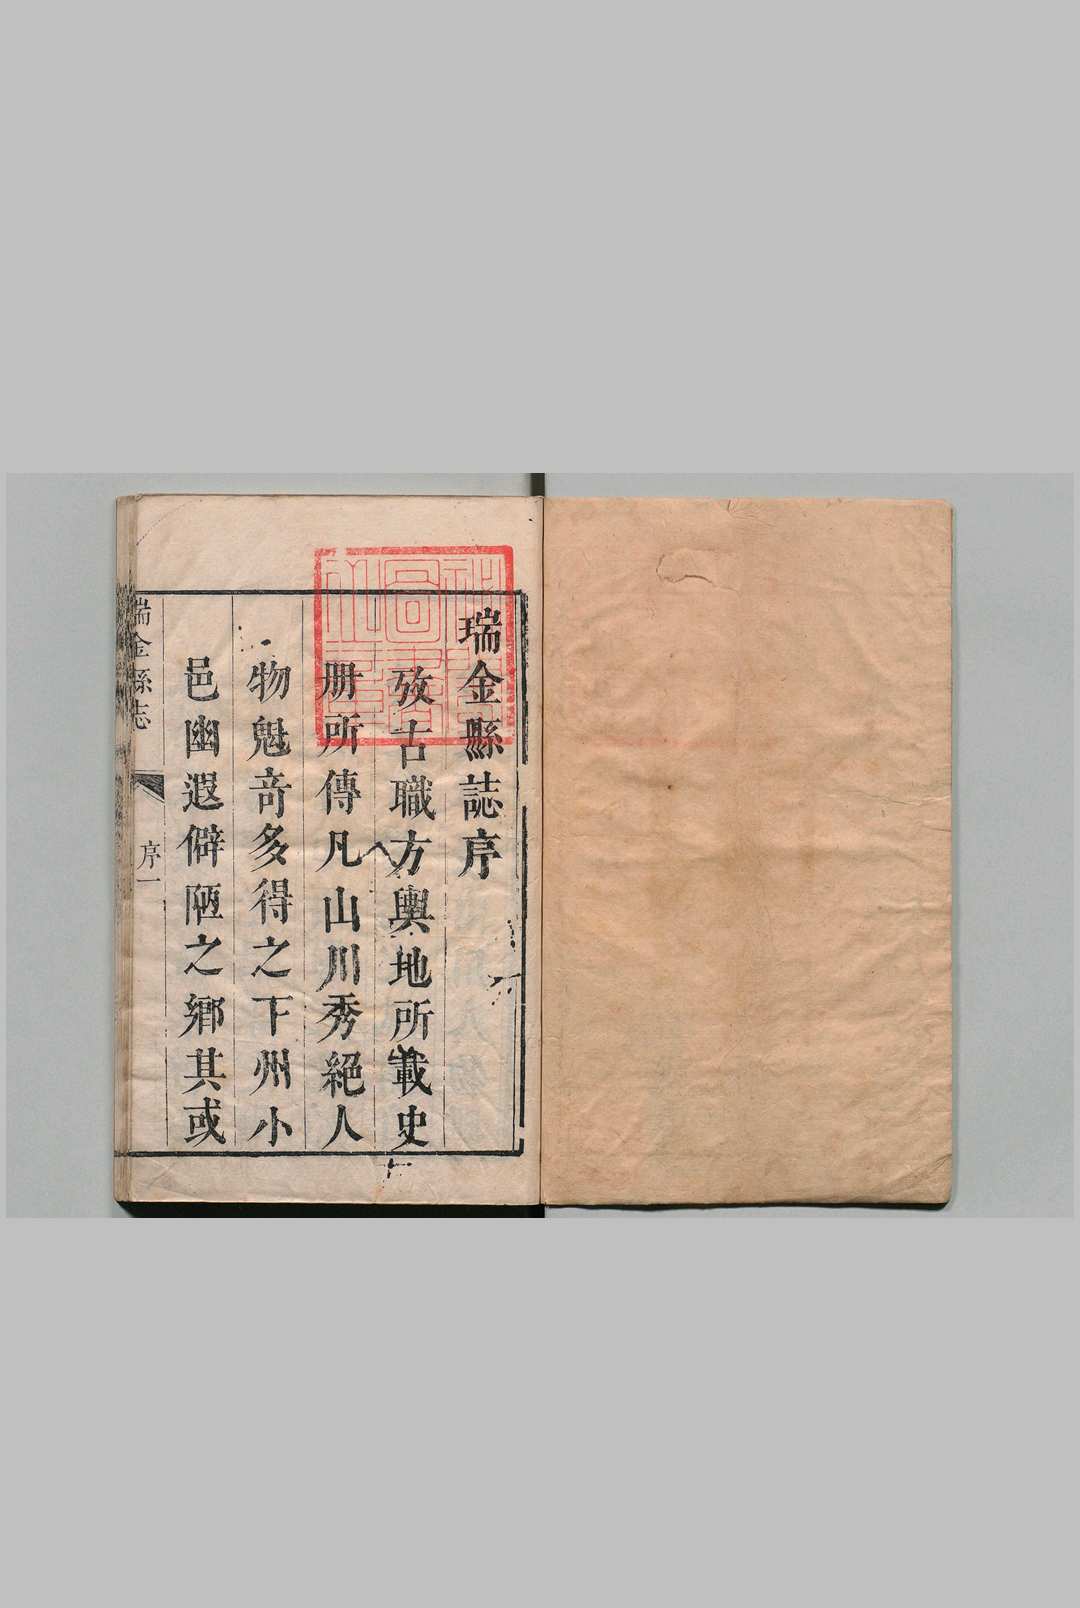 瑞金縣誌序
攷古職方輿地所載史
册所傳凡山川秀絕人
物魁竒多得之下州小
邑幽遐僻陋之鄉其或
瑞金縣志
序一